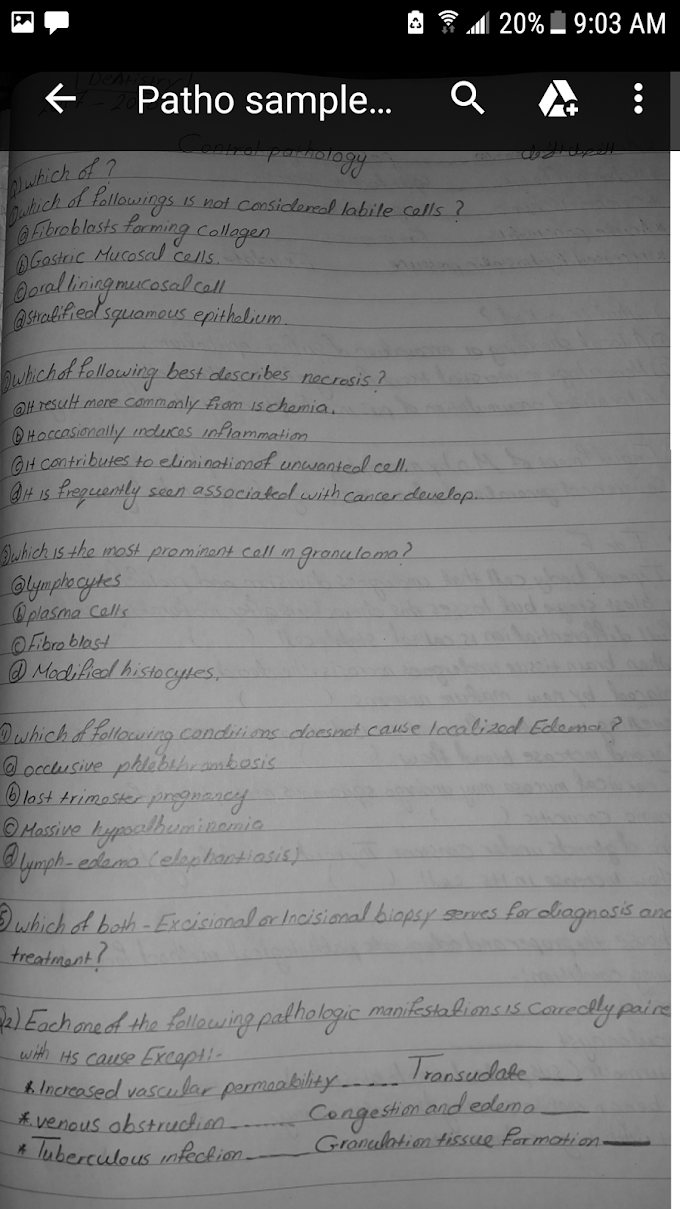 20% 9:03 AM
Patho sample...
Dentistry
General pathology
Q1) which of ?
① which of followings is not considered labile cells ?
ⓐ Fibroblasts forming collagen
ⓑ Gastric Mucosal cells.
ⓒ oral lining mucosal cell
ⓓ stratified squamous epithelium.
② which of following best describes necrosis ?
ⓐ It result more commonly from ischemia.
ⓑ It occasionally induces inflammation
ⓒ it contributes to elimination of unwanted cell.
ⓓ It is frequently seen associated with cancer develop.
③ which is the most prominent cell in granuloma ?
ⓐ lymphocytes
ⓑ plasma cells
ⓒ Fibroblast
ⓓ Modified histocytes.
④ which of following conditions doesnot cause localized Edema ?
ⓐ occlusive phlebthrambosis
ⓑ last trimester pregnancy
ⓒ Massive hypoalbuminemia
ⓓ lymph-edema (elephantiasis)
⑤ which of both - Excisional or Incisional biopsy serves for diagnosis and
treatment ?
Q2) Each one of the following pathologic manifestations is correctly paire
with its cause Except:-
* Increased vascular permeability ...... Transudate
* venous obstruction ........ Congestion and edema
* Tuberculous infection ........ Granulation tissue formation